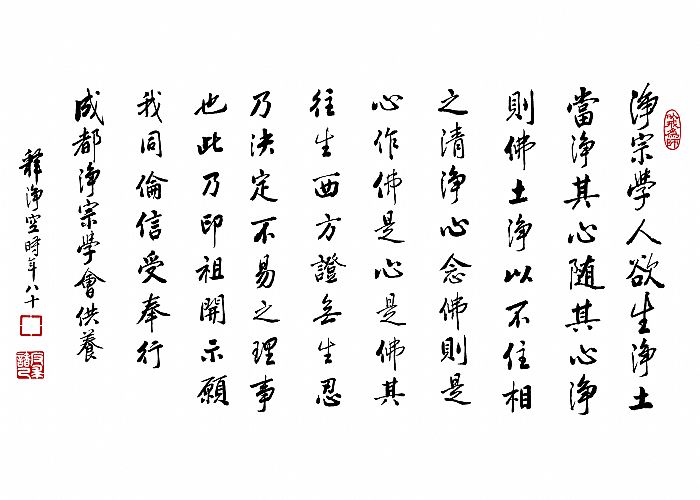 淨宗學人欲生淨土
當淨其心随其心淨
則佛土淨以不住相
之清淨心念佛則是
心作佛是心是佛其
往生西方證無生忍
乃决定不易之理事
也此乃印祖開示願
我同倫信受奉行
成都淨宗學會供養
釋淨空時年八十